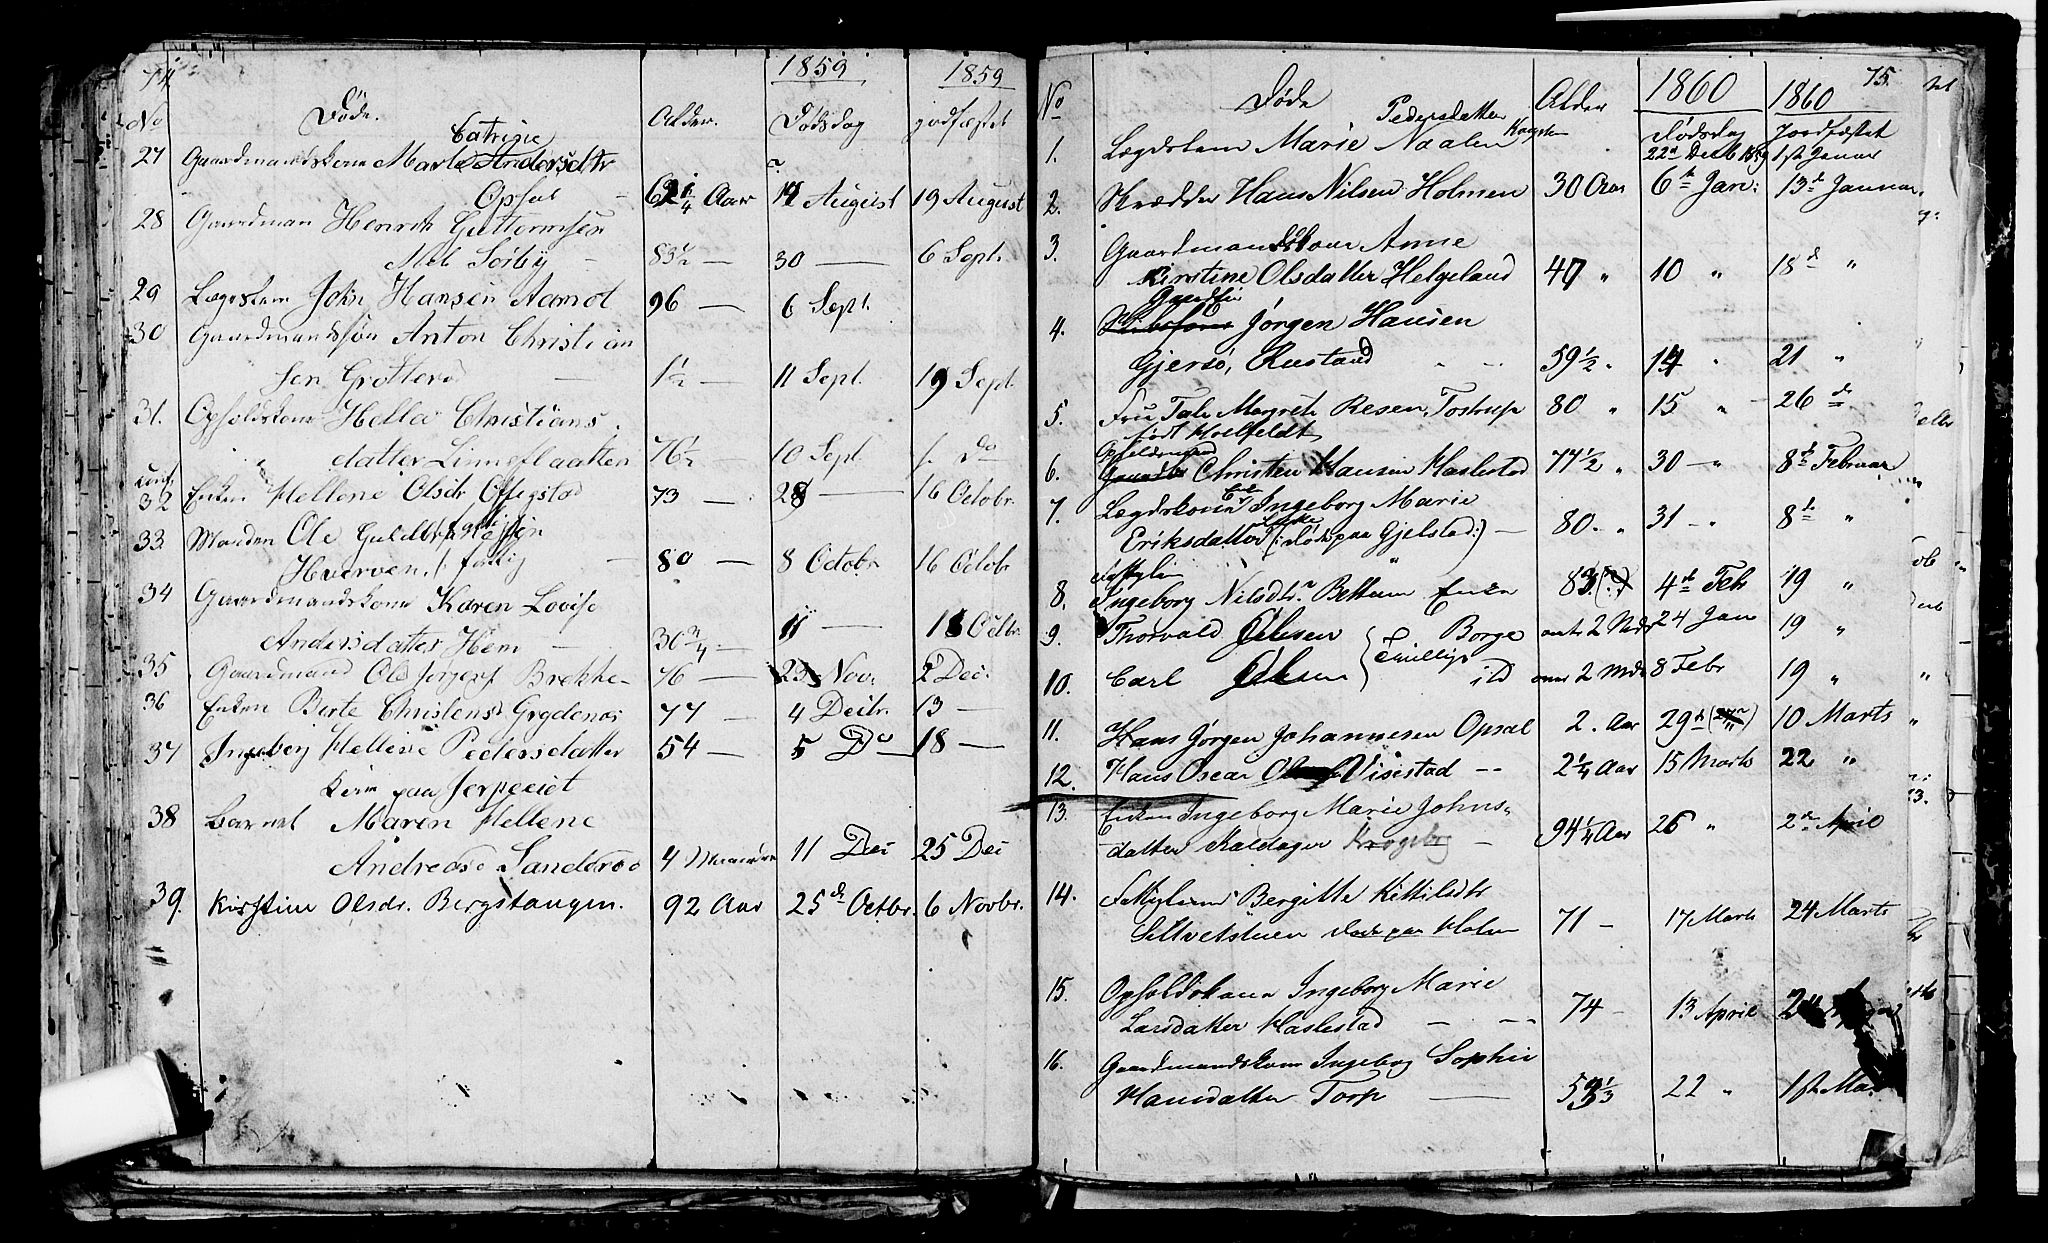 74
1859
1859
No
Døde.
Alder.
Dødsdag
jordfæstet
Catrine
27 Gaardmandskone Marte Andersdtr
Opsal 62 1/4 Aar 14 August 19 August
28 Gaardmand Henrik Guttormsen
Mel Sørby 83 1/2 — 30 — 6 Sept.
29 Lægdslem John Hansen Aamot 96 — 6 Sept.
30 Gaardmandssøn Anton Christian
sen Grotterød — 1 1/2 — 11 Sept. 19 Sept.
31. Opholdskone Helleo Christians
datter Linneflaatten 76 1/2 10 Sept do
conf.
32 Enken Hellene Olsdtr Offigstad 73 — 28 — 16 Octobr.
33. Manden Ole Guldbrandsen
Hverven, /: fattig — 80 — 8 Octobr. 16 Octobr
34 Gaardmandskone Karen Lovise
Andersdatter Hem — 30 3/4 — 11 — 18 Octbr.
35 Gaardmand Ole Jørgens Brekke 76 — 23 Nov. 2 Dec.
36 Enken Berte Christensd. Grydenøs 77 — 4 Decbr. 13 —
37 Ingeborg Hellene Pedersdatter 54 — 5 Do 18 —
paa Jerpeeiet
38 Barnet Maren Hellene
Andreasd. Sanderød 4 Maaneder 11 Dec 25 Dec
39. Kirstine Olsdr. Bergstangen. 92 Aar 25de Octbr. 6 Novbr.
75.
1860
1860
No
Døde
Alder
Dødsdag
Jordfæstet
Pedersdatter
1. Lægdslem Marie Naalen 22de Decb 1859 1ste Januar
2. Skrædder Hans Nilsen Holmen 30 Aar 6te Jan: 13de Januar
3. Gaardmandskone Anne
Kirstine Olsdatter Helgeland 47 " 10 " 18de "
4. Jørgen Hansen
Gjersø, Rustand 59 1/2 " 14 " 21 "
5. Fru Tale Margrete Resen, Tostrup 80 " 15 " 26de
født Hoelfeldt
Opholdsmand
6. Christen Hansen Haslestad 77 1/2 " 30 — " 8de Februar
7. Lægdskonen Enke Ingeborg Marie
Eriksdatter (: døde paa Gjelstad :) — 80. " 31 — " 8de "
8. Ingeborg Nilsdtr. Bettum Enke 83 (?) 4de Feb 19 "
9. Thorvald Olsen 2 Mdr 24 Jan 19 "
Tvillige
Borge
10. Carl Olsen 2 Mdr 8 Febr 19 "
11. Hans Jørgen Johannesen Opsal 2. Aar 29de 10 Marts
12. Hans Oscar Visestad -- 2 1/4 Aar 15 Marts 22 "
13. Enken Ingeborg Marie Johns-
datter Kaldager — 94 1/4 Aar 26 " 2den April
14. Bergitte Kittilsdtr
døde paa Holm 71 — 17 Marts 24 Marts
15. Opholdskone Ingeborg Marie
Larsdatter Haslestad — — 74 — 13 April
16. Gaardmandskone Ingeborg Sophie
Hansdatter Torp — 53 1/3 22 " 1ste Mai